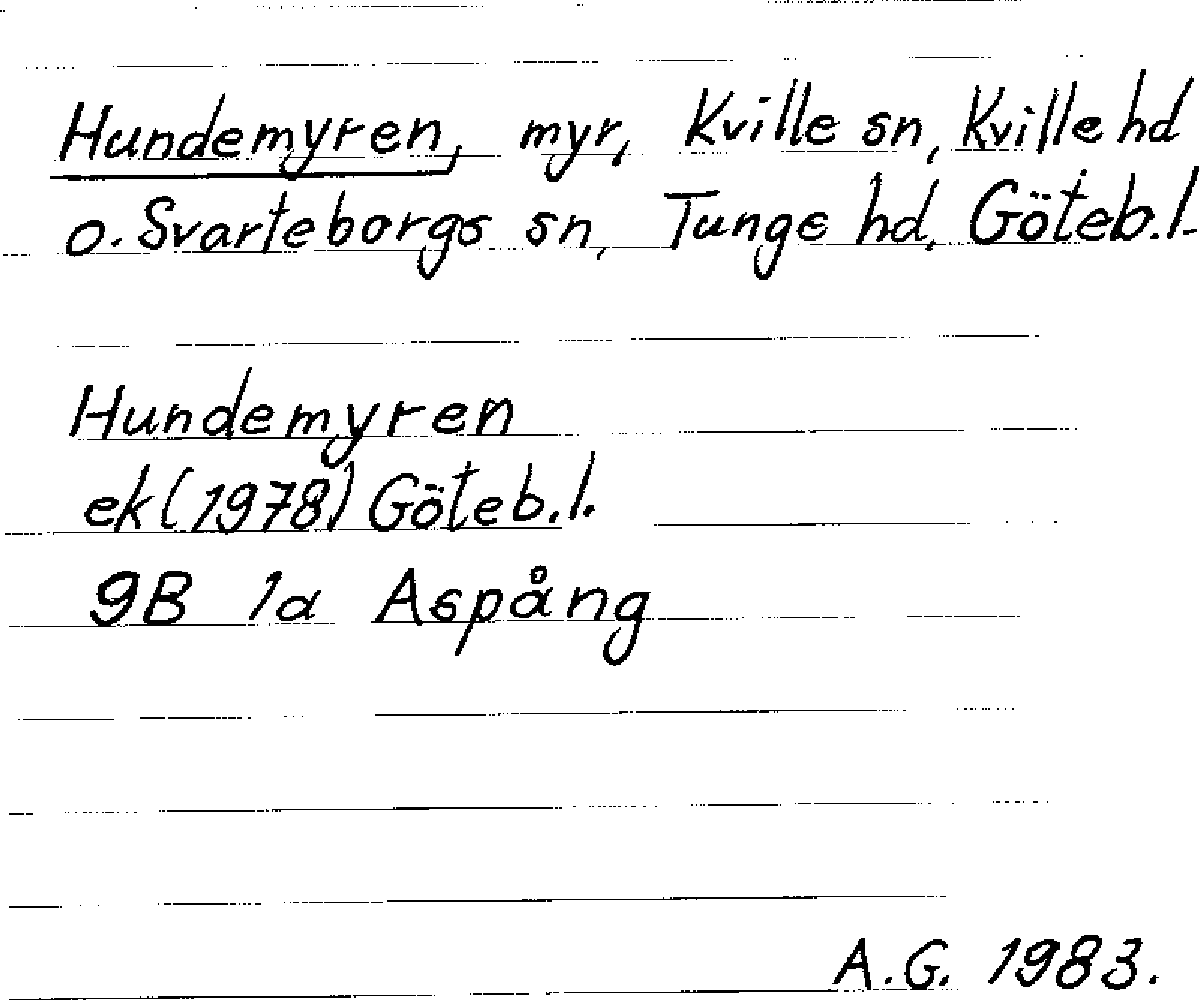 Hundemyren, myr, Kville sn, Kville hd
o. Svarteborgs sn, Tunge hd, Göteb.l.
Hundemyren
ek (1978) Göteb.l.
9B 1a Aspång
A.G. 1983.